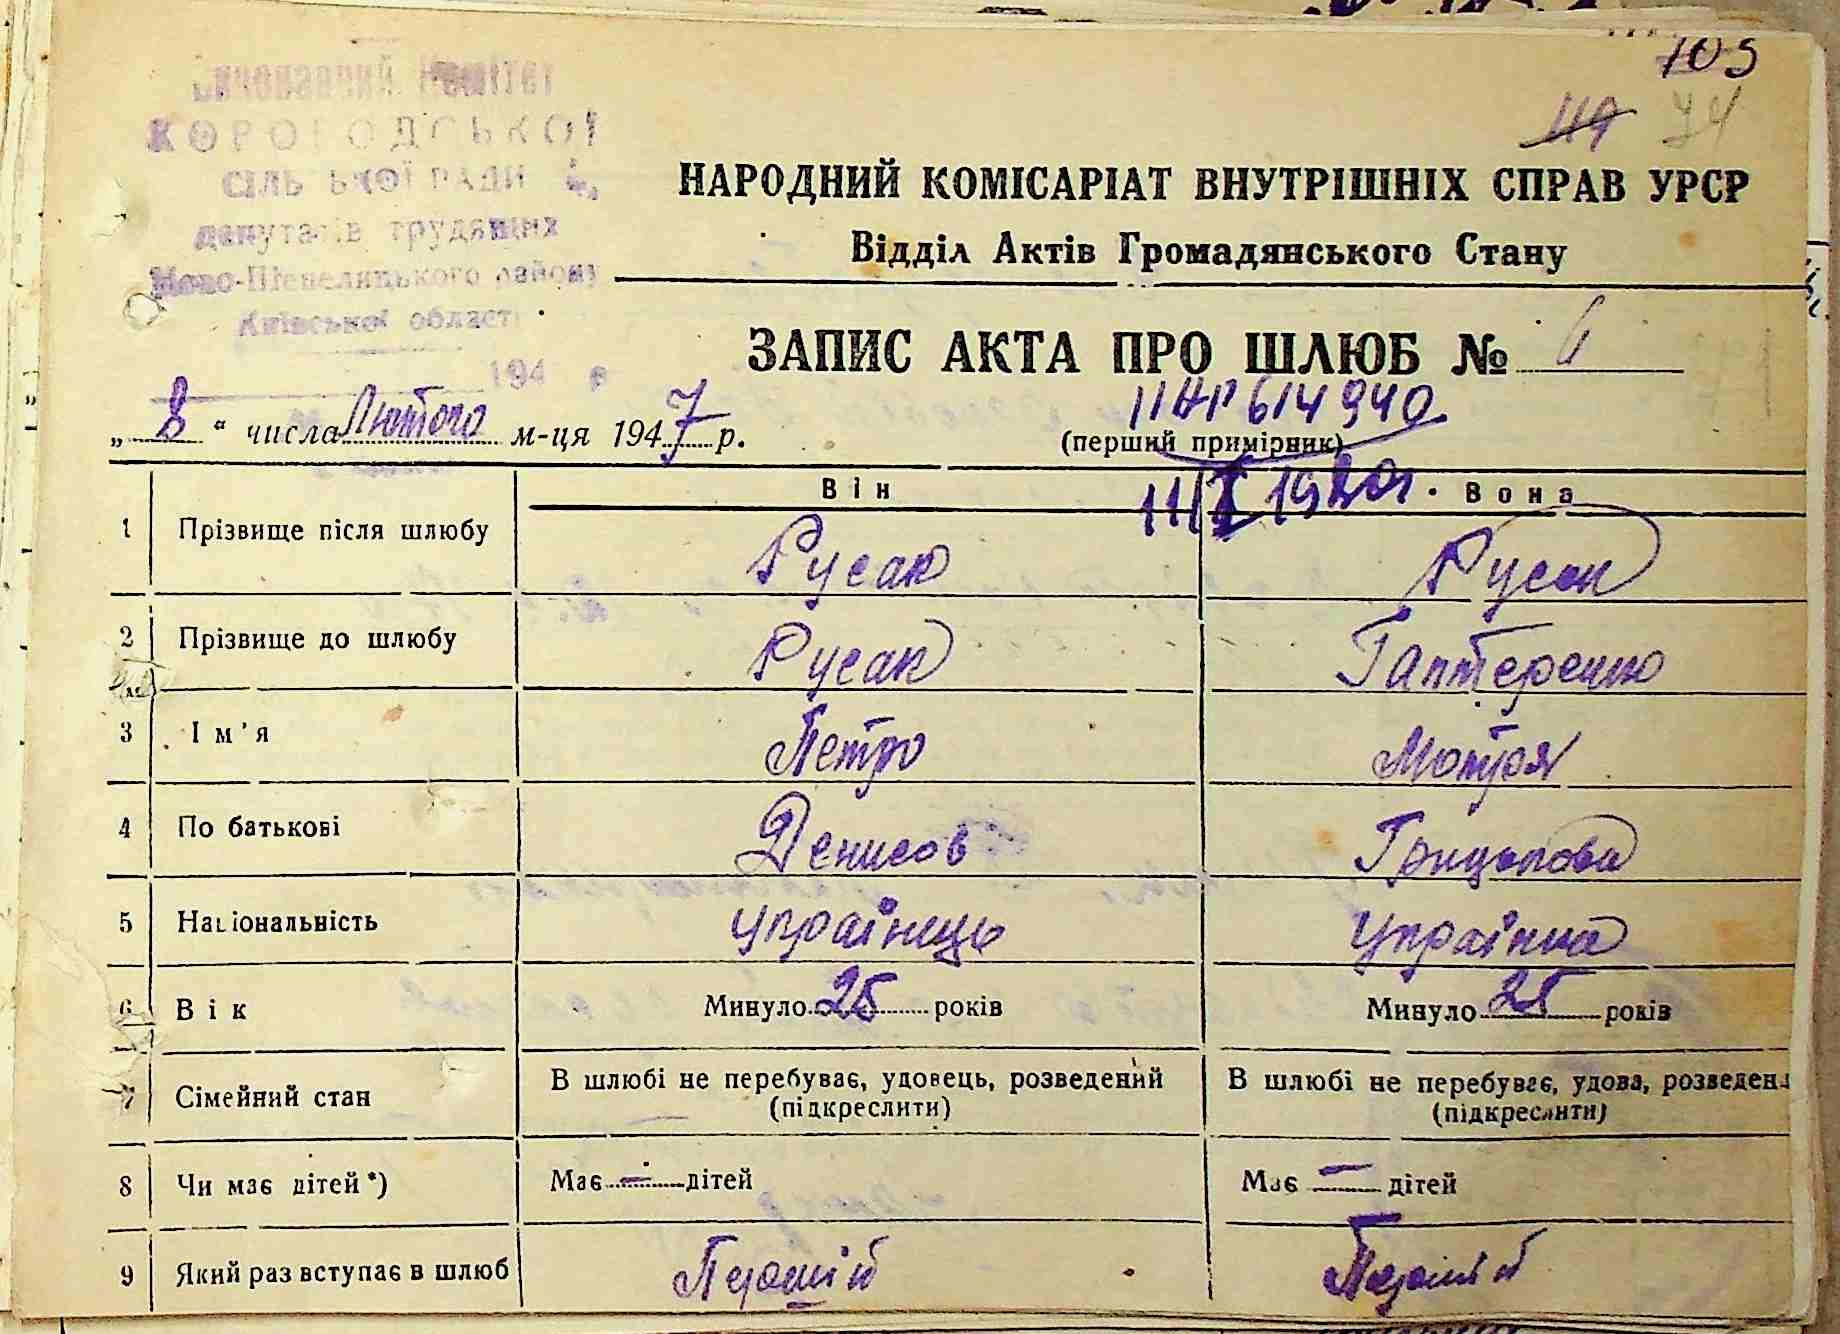 105
119 74
Виконавчий Комітет
КОРОГОДСЬКОЇ
СІЛЬ ЬКОЇ РАДИ
депутатів трудящих
Ново-Шепелицького району
Київської област
194 р
НАРОДНИЙ КОМІСАРІАТ ВНУТРІШНІХ СПРАВ УРСР
Відділ Актів Громадянського Стану
ЗАПИС АКТА ПРО ШЛЮБ № 6
„ 8 “ числа Лютого м-ця 1947 р.
614940
(перший примірник)
Він Вона
1 Прізвище після шлюбу Русак Русак
2 Прізвище до шлюбу Русак Гаптеренко
3 Ім'я Петро Мотря
4 По батькові Денисов Грицькова
5 Національність Українець Українка
6 Вік Минуло 25 років Минуло 25 років
7 Сімейний стан В шлюбі не перебуває, удовець, розведений В шлюбі не перебуває, удова, розведена
(підкреслити) (підкреслити)
8 Чи має дітей*) Має — дітей Має — дітей
9 Який раз вступає в шлюб Перший Перший